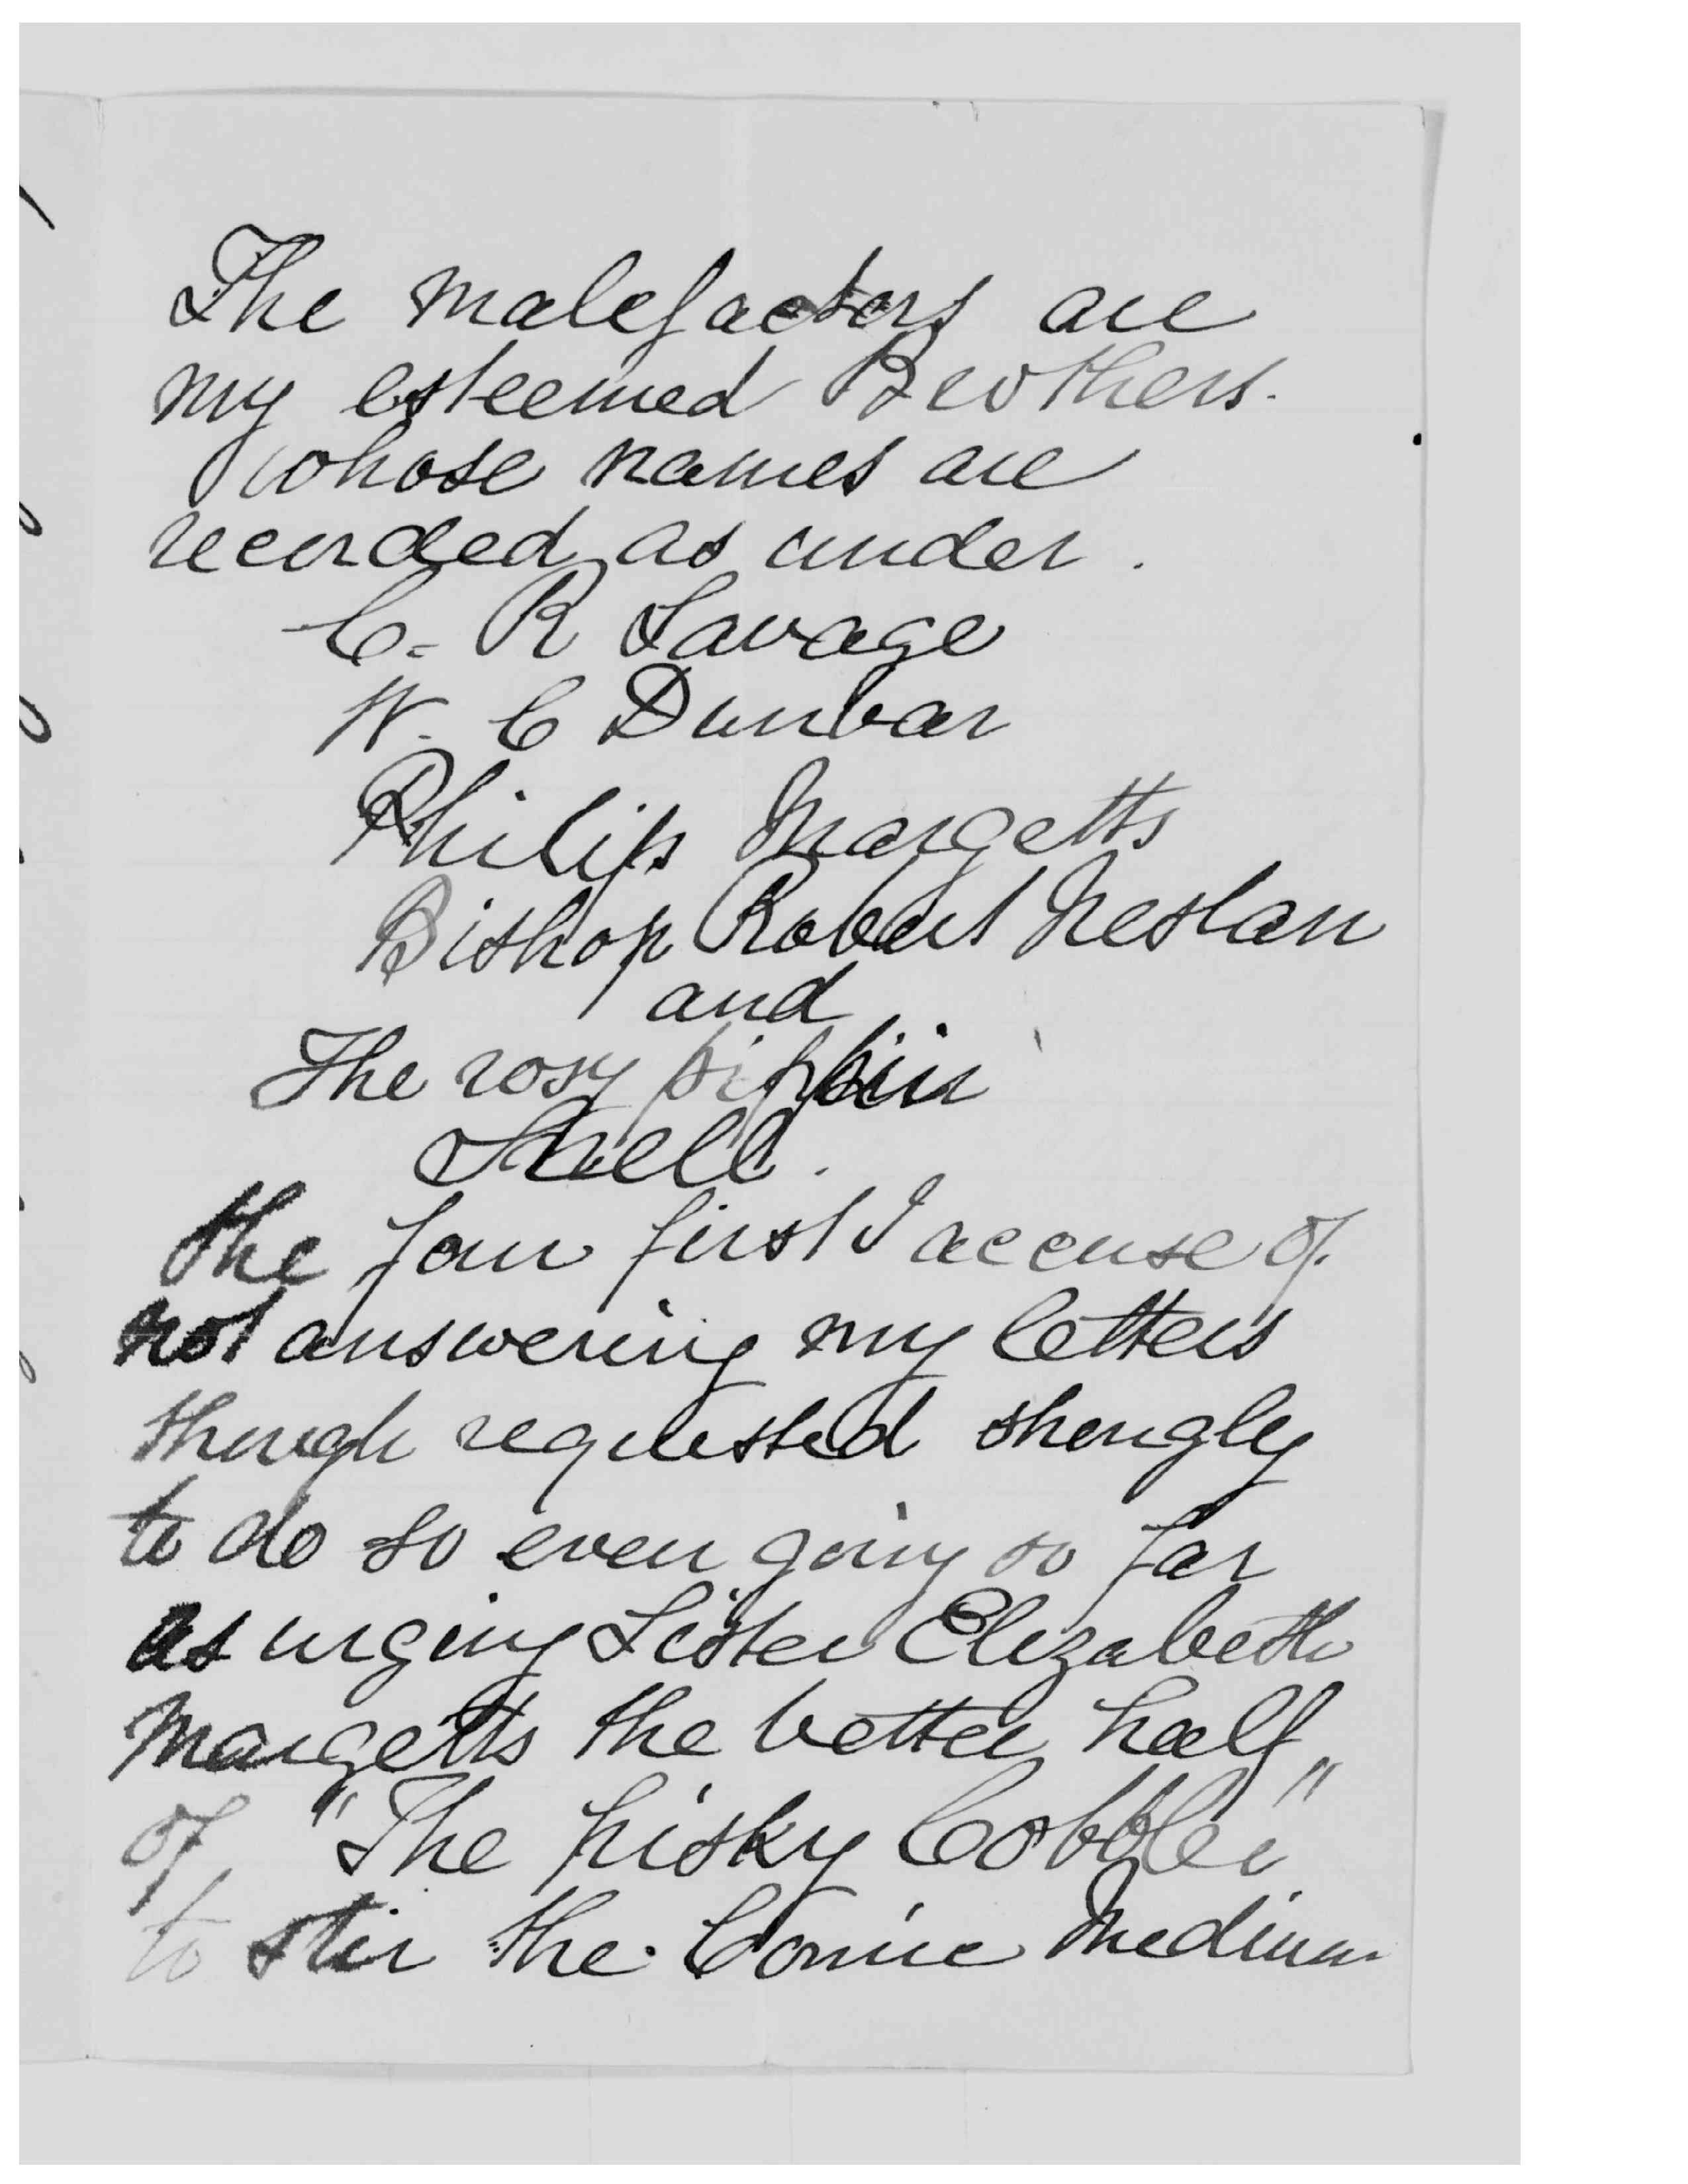 The malefactors are
my esteemed Brothers.
whose names are
recorded as under.
C. R Savage
W. C Dunbar
Philip Margetts
Bishop Robert Neslan
and
The rosy pippin
Snell.
the four first I accuse of
not answering my letters
though requested strongly
to do so even going so far
as urging Sister Elizabeth
Margetts the better half
of "The frisky Cobbler"
to stir the Comic Medium